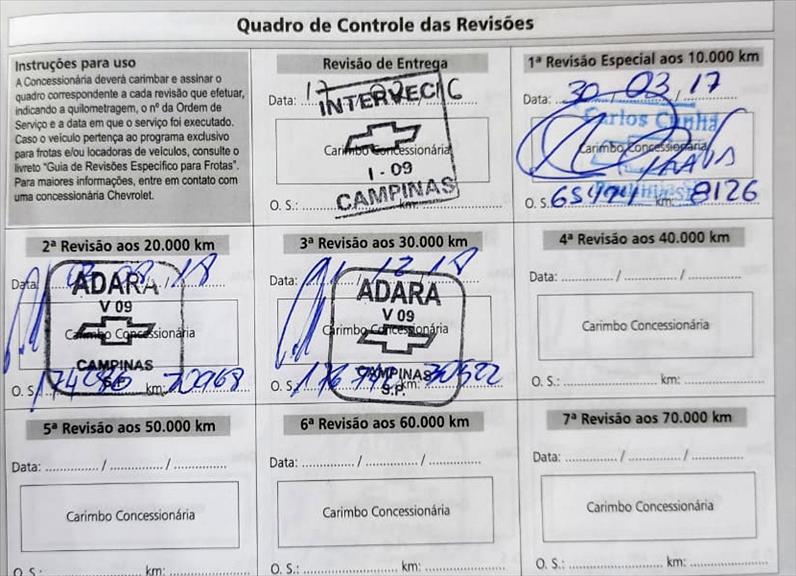 Quadro de Controle das Revisões
Instruções para uso
A Concessionária deverá carimbar e assinar o
quadro correspondente a cada revisão que efetuar,
indicando a quilometragem, o nº da Ordem de
Serviço e a data em que o serviço foi executado.
Caso o veículo pertença ao programa exclusivo
para frotas e/ou locadoras de veículos, consulte o
livreto "Guia de Revisões Específico para Frotas".
Para maiores informações, entre em contato com
uma concessionária Chevrolet.
Revisão de Entrega
Data: 17
INTERVEC
Carimbo Concessionária
I - 09
CAMPINAS
O. S.: km:
1ª Revisão Especial aos 10.000 km
Data: 30 / 03 / 17
Carlos Cunha
Carimbo Concessionária
O. S. km: 8126
2ª Revisão aos 20.000 km
Data: 18
ADARA
V 09
Carimbo Concessionária
CAMPINAS
S.P.
O. S. km: 20968
3ª Revisão aos 30.000 km
Data: 12 18
ADARA
V 09
Carimbo Concessionária
CAMPINAS
S.P.
O. S. km: 30522
4ª Revisão aos 40.000 km
Data: / /
Carimbo Concessionária
O. S.: km:
5ª Revisão aos 50.000 km
Data: / /
Carimbo Concessionária
O. S.: km:
6ª Revisão aos 60.000 km
Data: / /
Carimbo Concessionária
O. S.: km:
7ª Revisão aos 70.000 km
Data: / /
Carimbo Concessionária
O. S.: km: